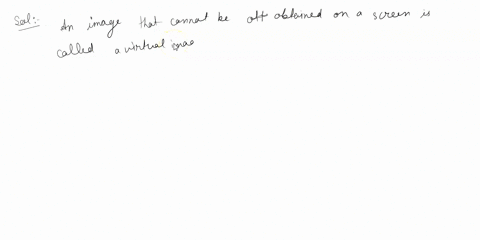 Sol:- An image that cannot be ott obtained on a screen is
called a virtual imae